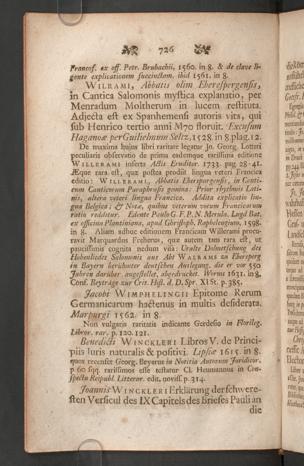 726
Francof. ex off. Petr. Brubachii, 1560. in 8. & de clave li-
gante explicationem succinctam. ibid 1561. in 8.
WILRAMI, Abbatis olim Eberespergensis,
in Cantica Salomonis mystica explanatio, per
Menradum Moltherum in lucem restituta.
Adjecta est ex Spanhemensi autoris vita, qui
sub Henrico tertio anni M70 floruit. Excusum
Haganoæ per Guilhelmum Seltz, 1528. in 8. plag. 12.
De maxima hujus libri raritate legatur Jo. Georg. Lotteri
peculiaris observatio de prima eademque rarissima editione
WILLERAMI inserta Actis Erudiror. 1733. pag. 28-41.
Æque rara est, quæ postea prodiit lingua veteri Francica
editio: WILLERAMI, Abbatis Eberspergensis, in Canti-
cum Canticorum Paraphrasis gemina: Prior rhythmis Lati-
nis, altera veteri lingua Francica. Addita explicatio lin-
gua Belgica; & Notæ, quibus veterum vocum Francicarum
ratio redditur. Edente Paulo G. F. P. N. Merula. Lugd Bat.
ex officina Plantiniana, apud Christoph. Raphelengium, 1598.
in 8. Aliam adhuc editionem Francicam Willerami procu-
ravit Marquardus Freherus, quæ autem tam rara est, ut
paucissimis cognita nedum visa: Uralte Dolmetschung des
Hohenliedes Salomonis von Abt WALRAMS zu Ebersperg
in Bayern berühmter deutschen Auslegung, die er vor 550
Jahren darüber angestellet, abgedrucket. Worms 1631. in 8.
Conf. Beyträge zur Crit. Hist. d. D. Spr. XI St. p. 385.
Jacobi WIMPHELINGII Epitome Rerum
Germanicarum hactenus in multis desiderata.
Marpurgi 1562. in 8.
Non vulgatis raritatis indicante Gerdesio in Florileg.
Libror. rar. p. 120. 121.
Benedicti WINCKLERI Libros V. de Princi-
piis Juris naturalis & positivi. Lipsiæ 1615. in 8.
quos recenset Georg. Beyerus in Notitia Autorum Juridicor.
p. 60 sqq. rarissimos esse testatur Cl. Heumannus in Con-
spectu Reipubl. Litterar. edit. noviss. p. 314.
Joannis WINCKLERI Erklärung der schwere-
sten Versicul des IX Capitels des Briefes Pauli an
die